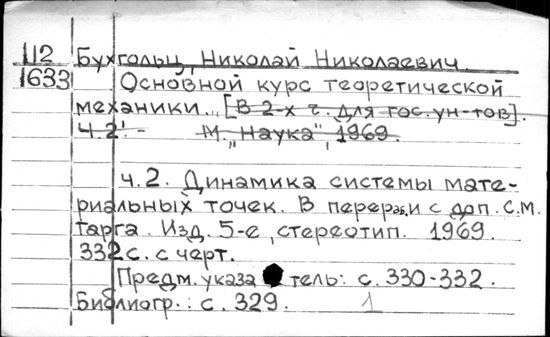 112 Бухгольц, Николай Николаевич.
1633 Основной курс теоретической
механики. [В 2-х ч. Для гос. ун-тов].
Ч.2. - М. "Наука", 1969.
ч.2. Динамика системы мате-
риальных точек. В перераб. и с доп. С.М.
Тарга. Изд. 5-е, стереотип. 1969.
332 с. с черт.
Предм. указатель: с. 330-332.
Библиогр.: с. 329. 1